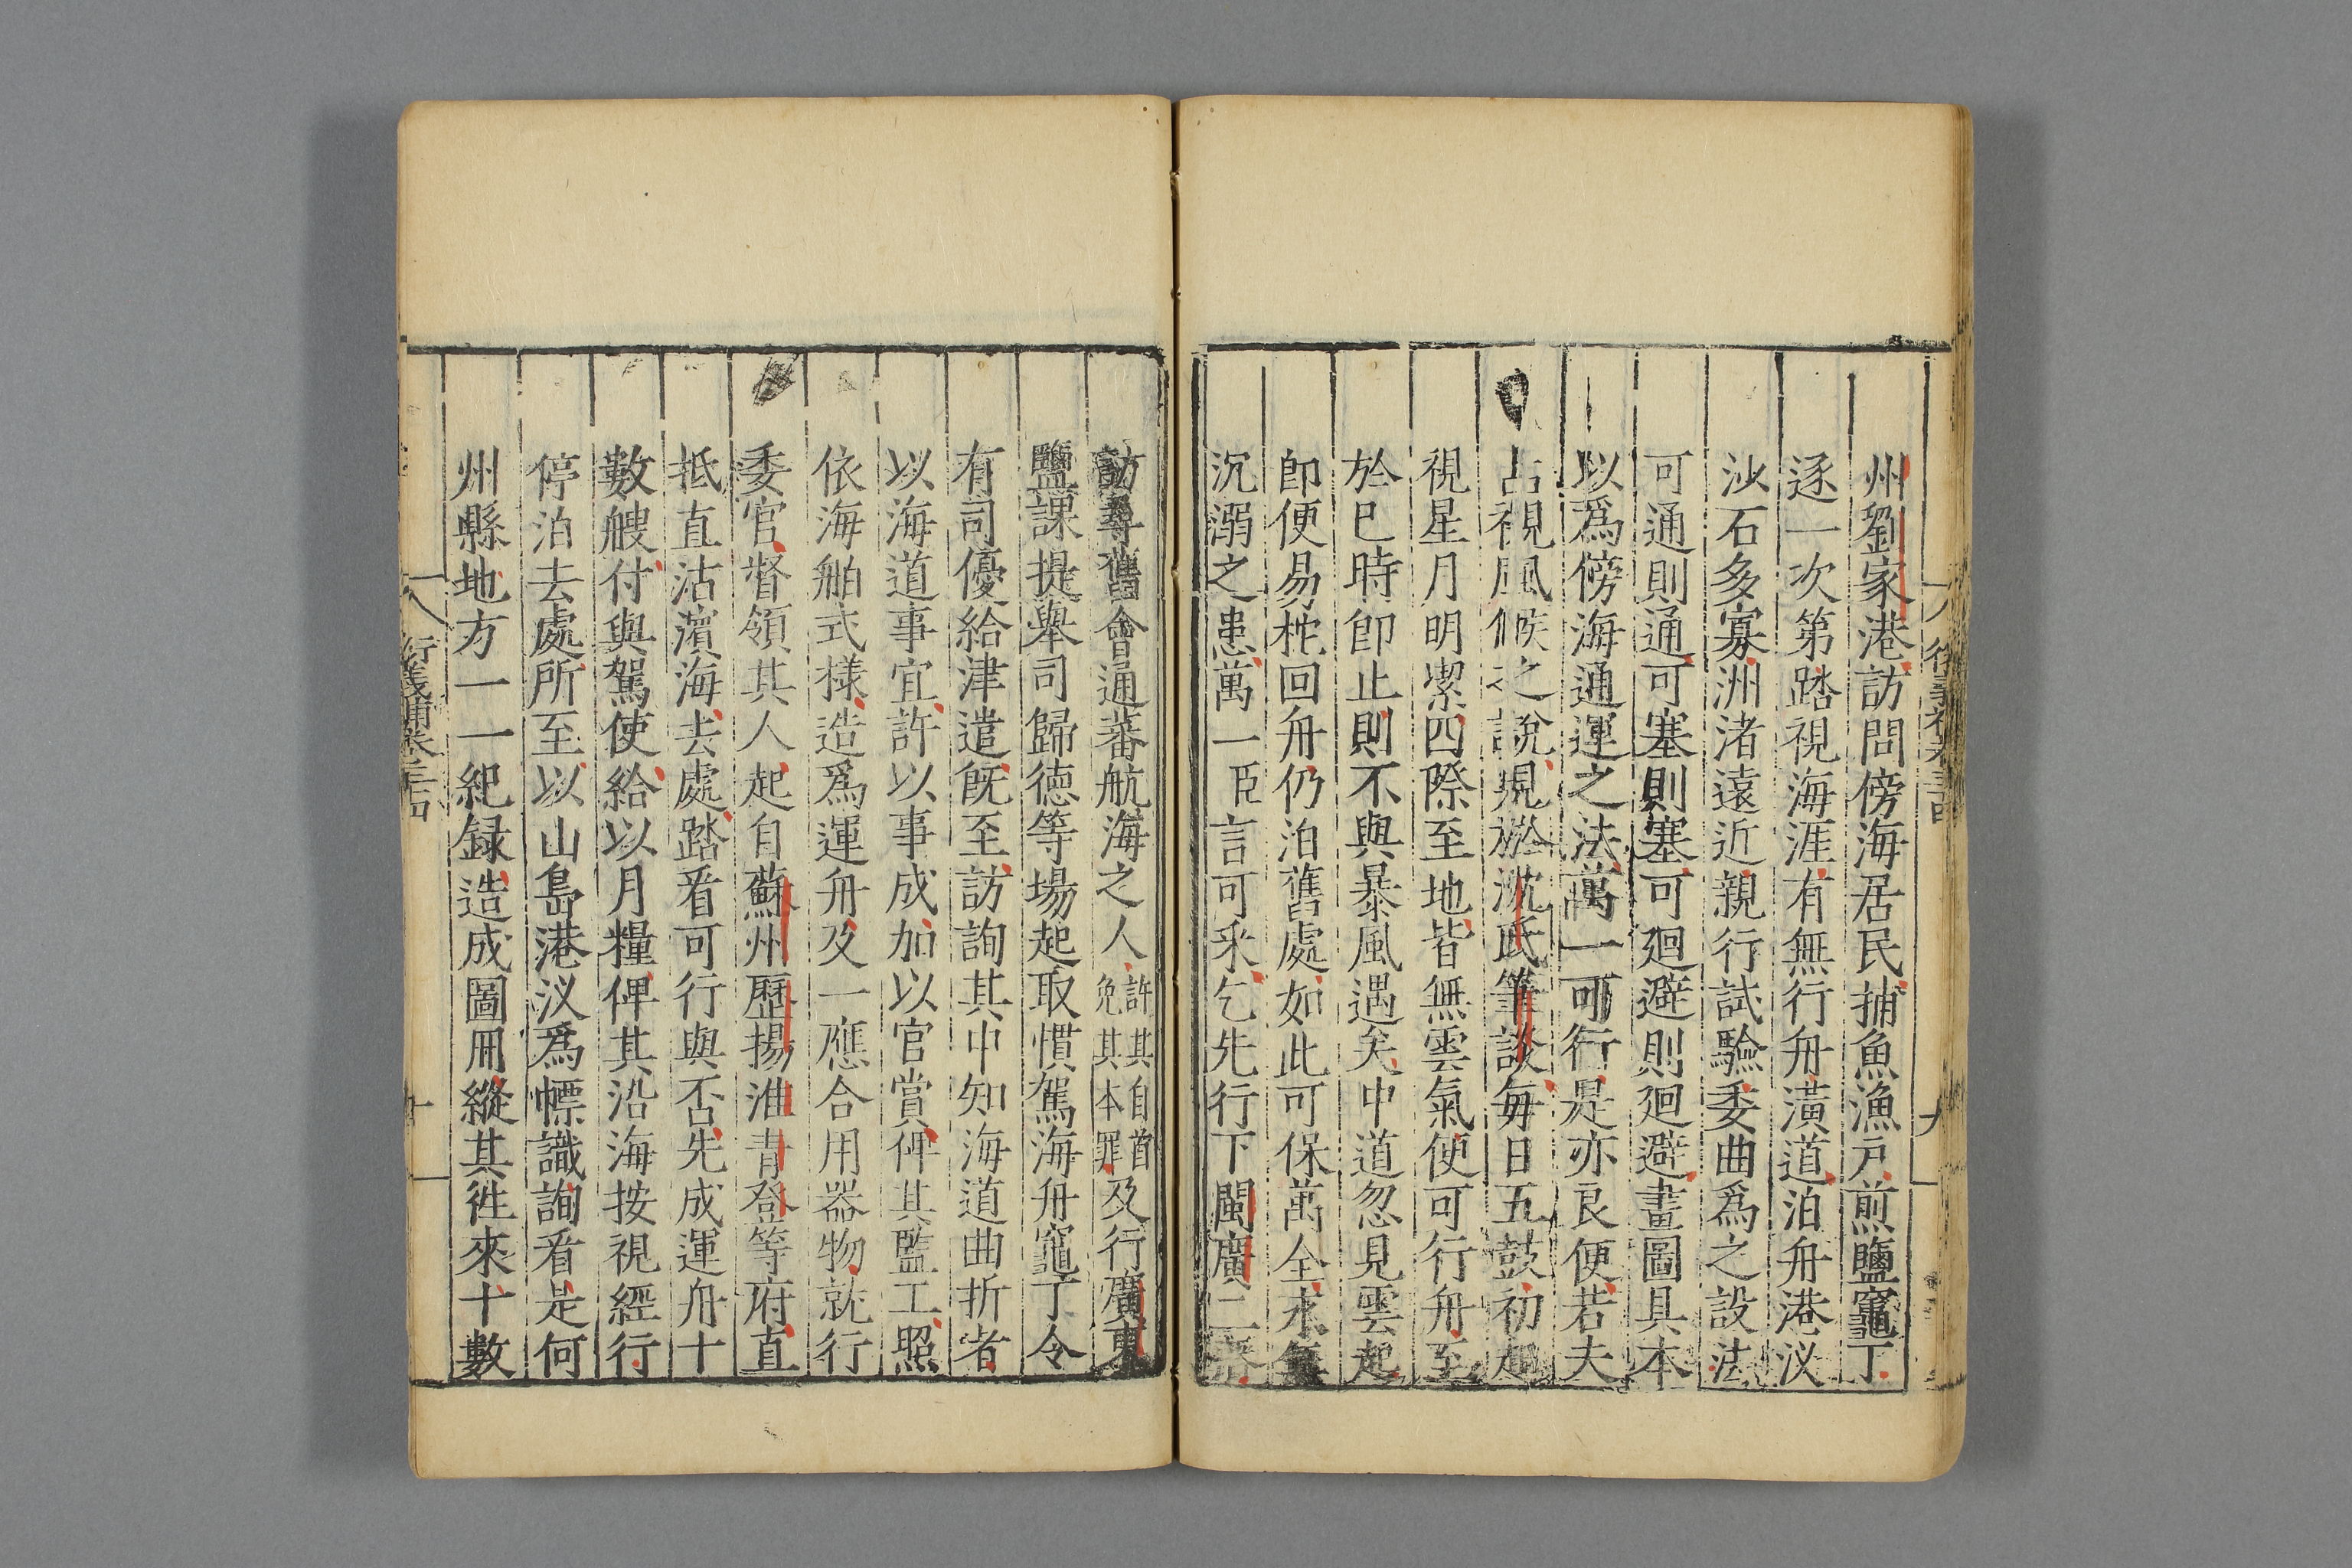 州劉家港訪問傍海居民捕魚漁戶煎鹽竈丁
逐一次第踏視海涯有無行舟潢道泊舟港汊
沙石多寡洲渚遠近親行試驗委曲爲之設法
可通則通可塞則塞可廻避則廻避畫圖具本
以爲傍海通運之法萬一可行是亦良便若夫
占視風候之說見於沈氏筆談每日五鼓初起
視星月明潔四際至地皆無雲氣便可行舟至
於巳時卽止則不與暴風遇矣中道忽見雲起
卽便易柁回舟仍泊舊處如此可保萬全永無
沉溺之患萬一臣言可采乞先行下閩廣二藩
訪尋舊會通蕃航海之人許其自首免其本罪及行廣東
鹽課提舉司歸德等場起取慣駕海舟竈丁令
有司優給津遣旣至訪詢其中知海道曲折者
以海道事宜許以事成加以官賞俾其監工照
依海舶式樣造爲運舟及一應合用器物就行
委官督領其人起自蘇州歷揚淮青登等府直
抵直沽濵海去處踏看可行與否先成運舟十
數艘付與駕使給以月糧俾其沿海按視經行
停泊去處所至以山島港汊爲幖識詢看是何
州縣地方一一紀録造成圖冊縱其徃來十數
衍義補卷三十四
十